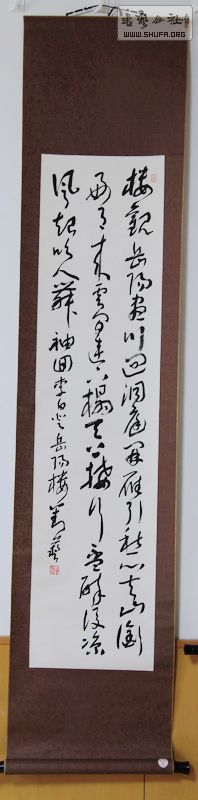 書藝公社
WWW.SHUFA.ORG
樓觀岳陽盡川迥洞庭開雁引愁心去山銜
好月來雲間連下榻天上接行盃醉後涼
風起吹人舞袖回 李白登岳陽樓 劉藝